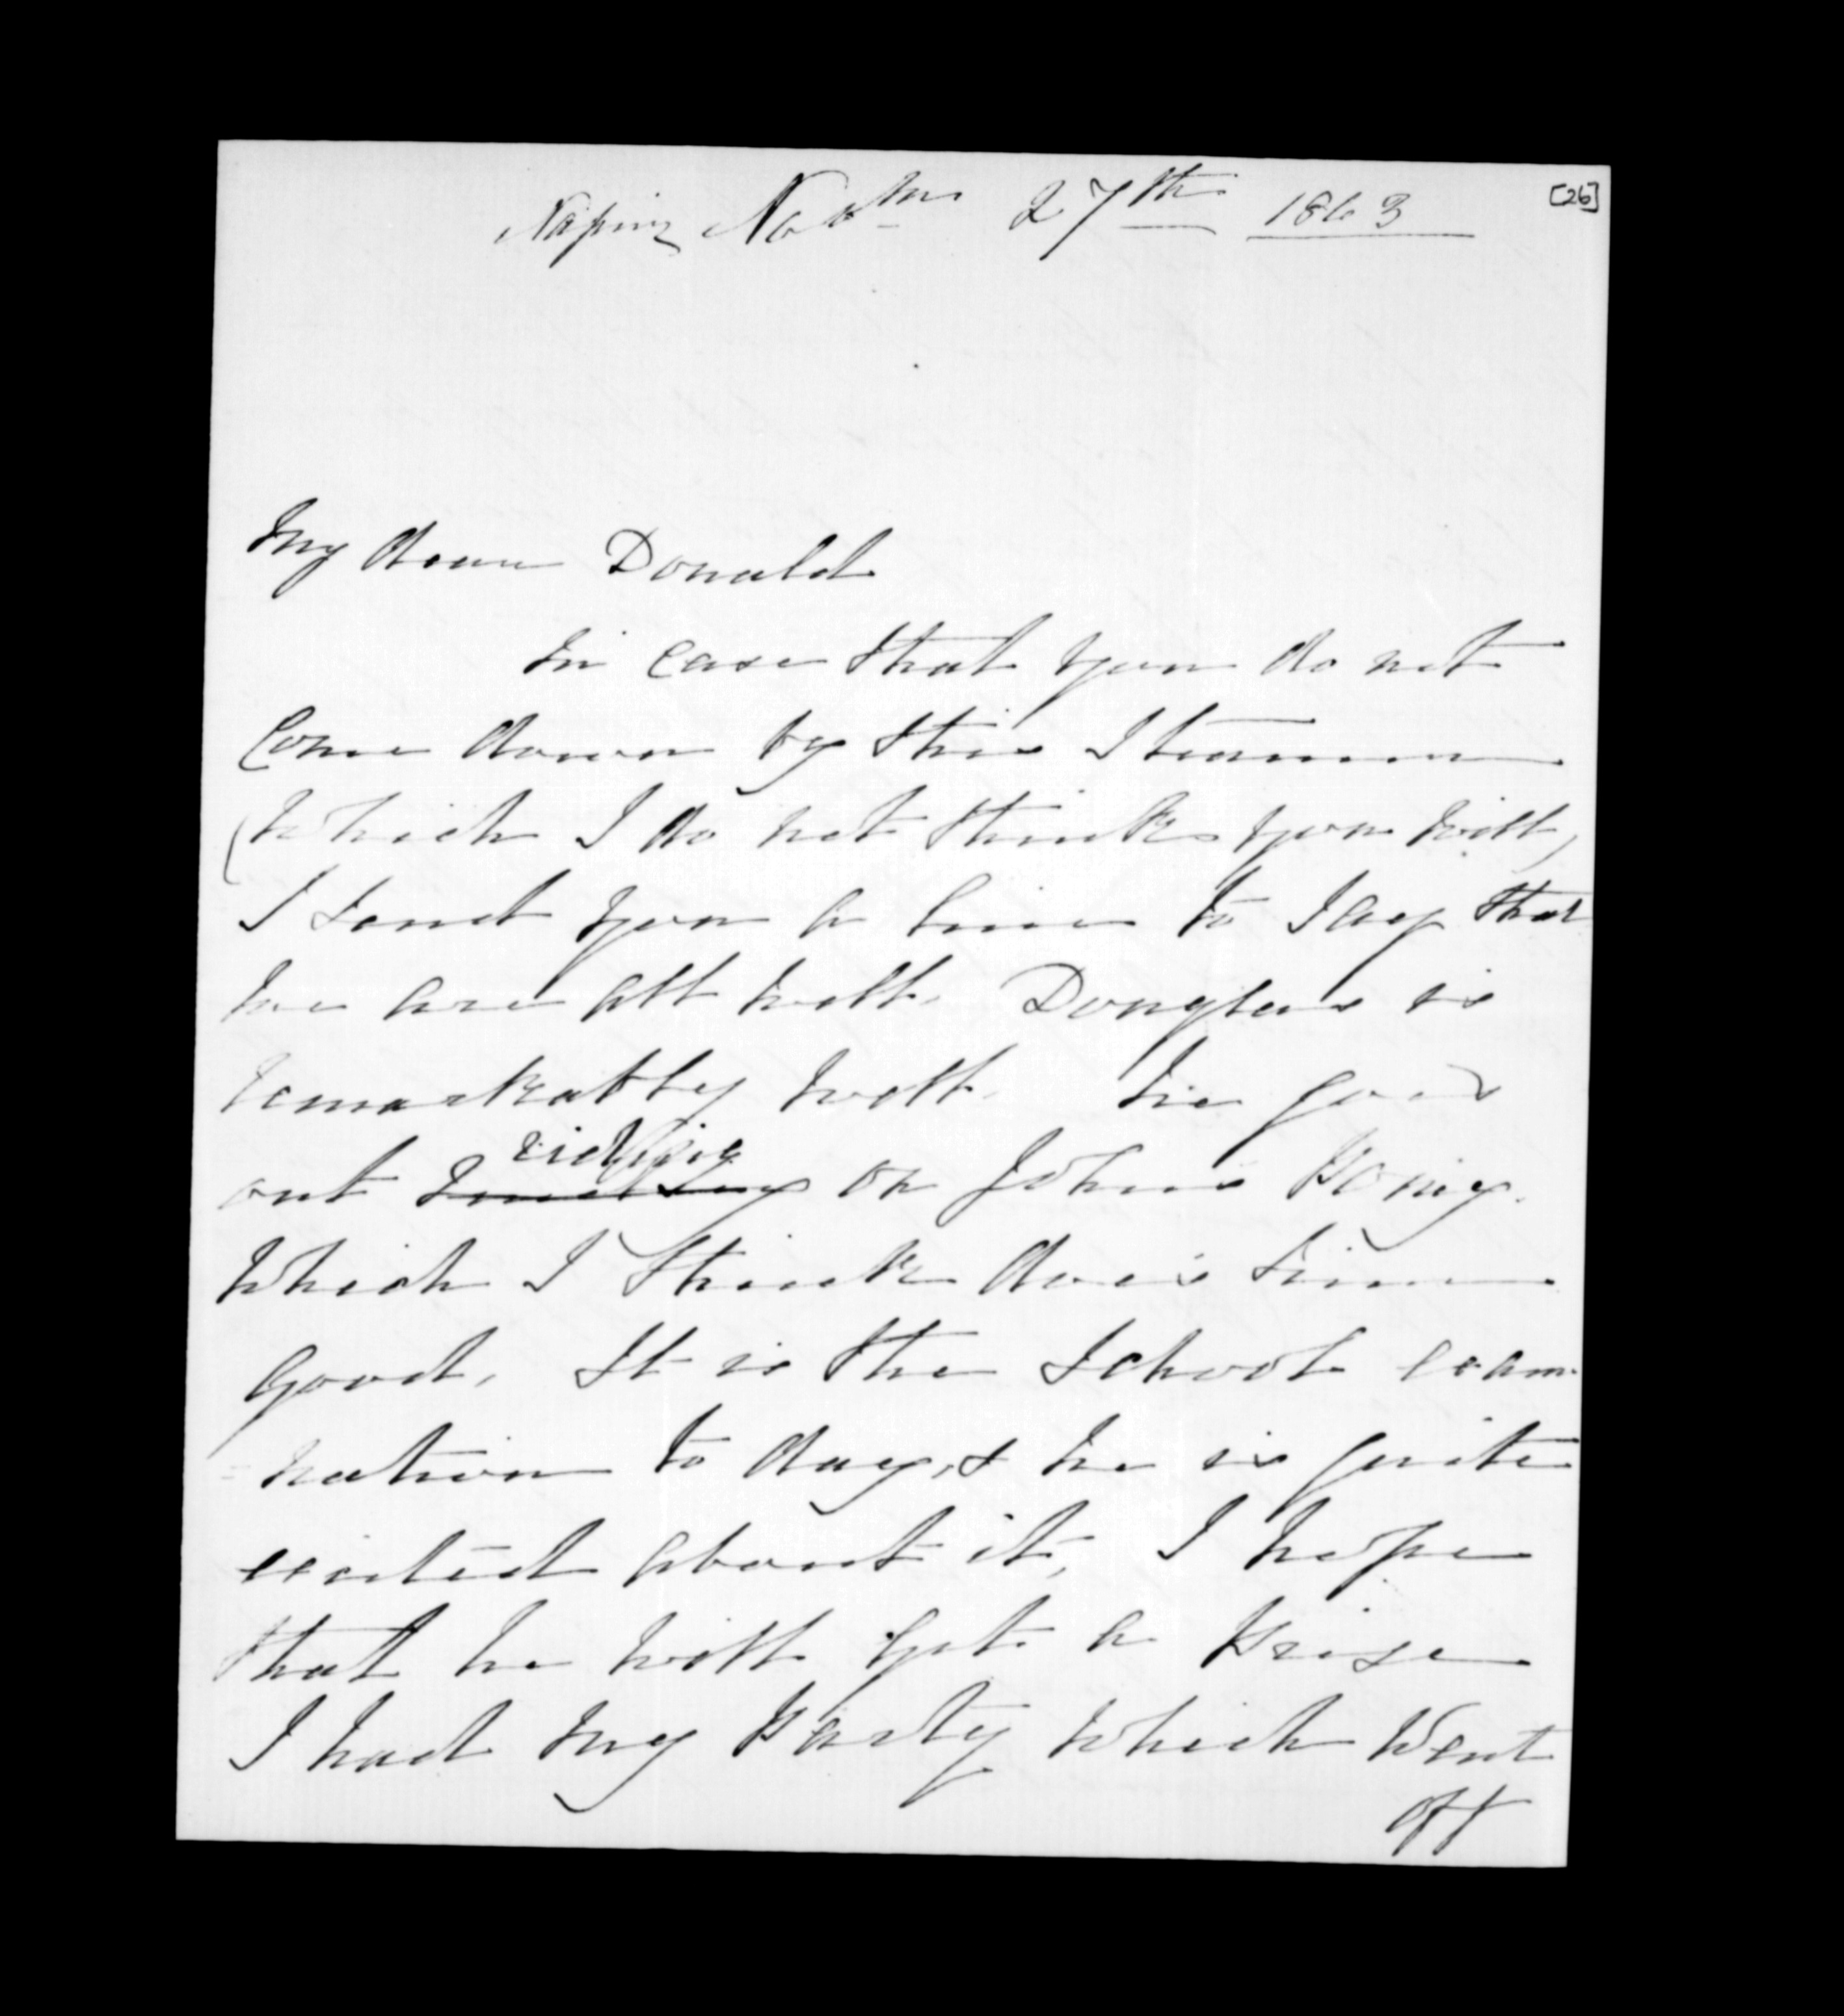 Napier Novbr 27th 1863
[26]
My dear Donald
In case that you do not
Come down by this Steamer
(which I do not think you will)
I send you a line to Say that
we are all well. Douglas is
remarkably well. he goes
riding
out on John's Pony.
Which I think does him
good. It is the School exam-
=nation to day, & he is quite
excited about it, I hope
that he will get a Prize
I had my Party which Went
off